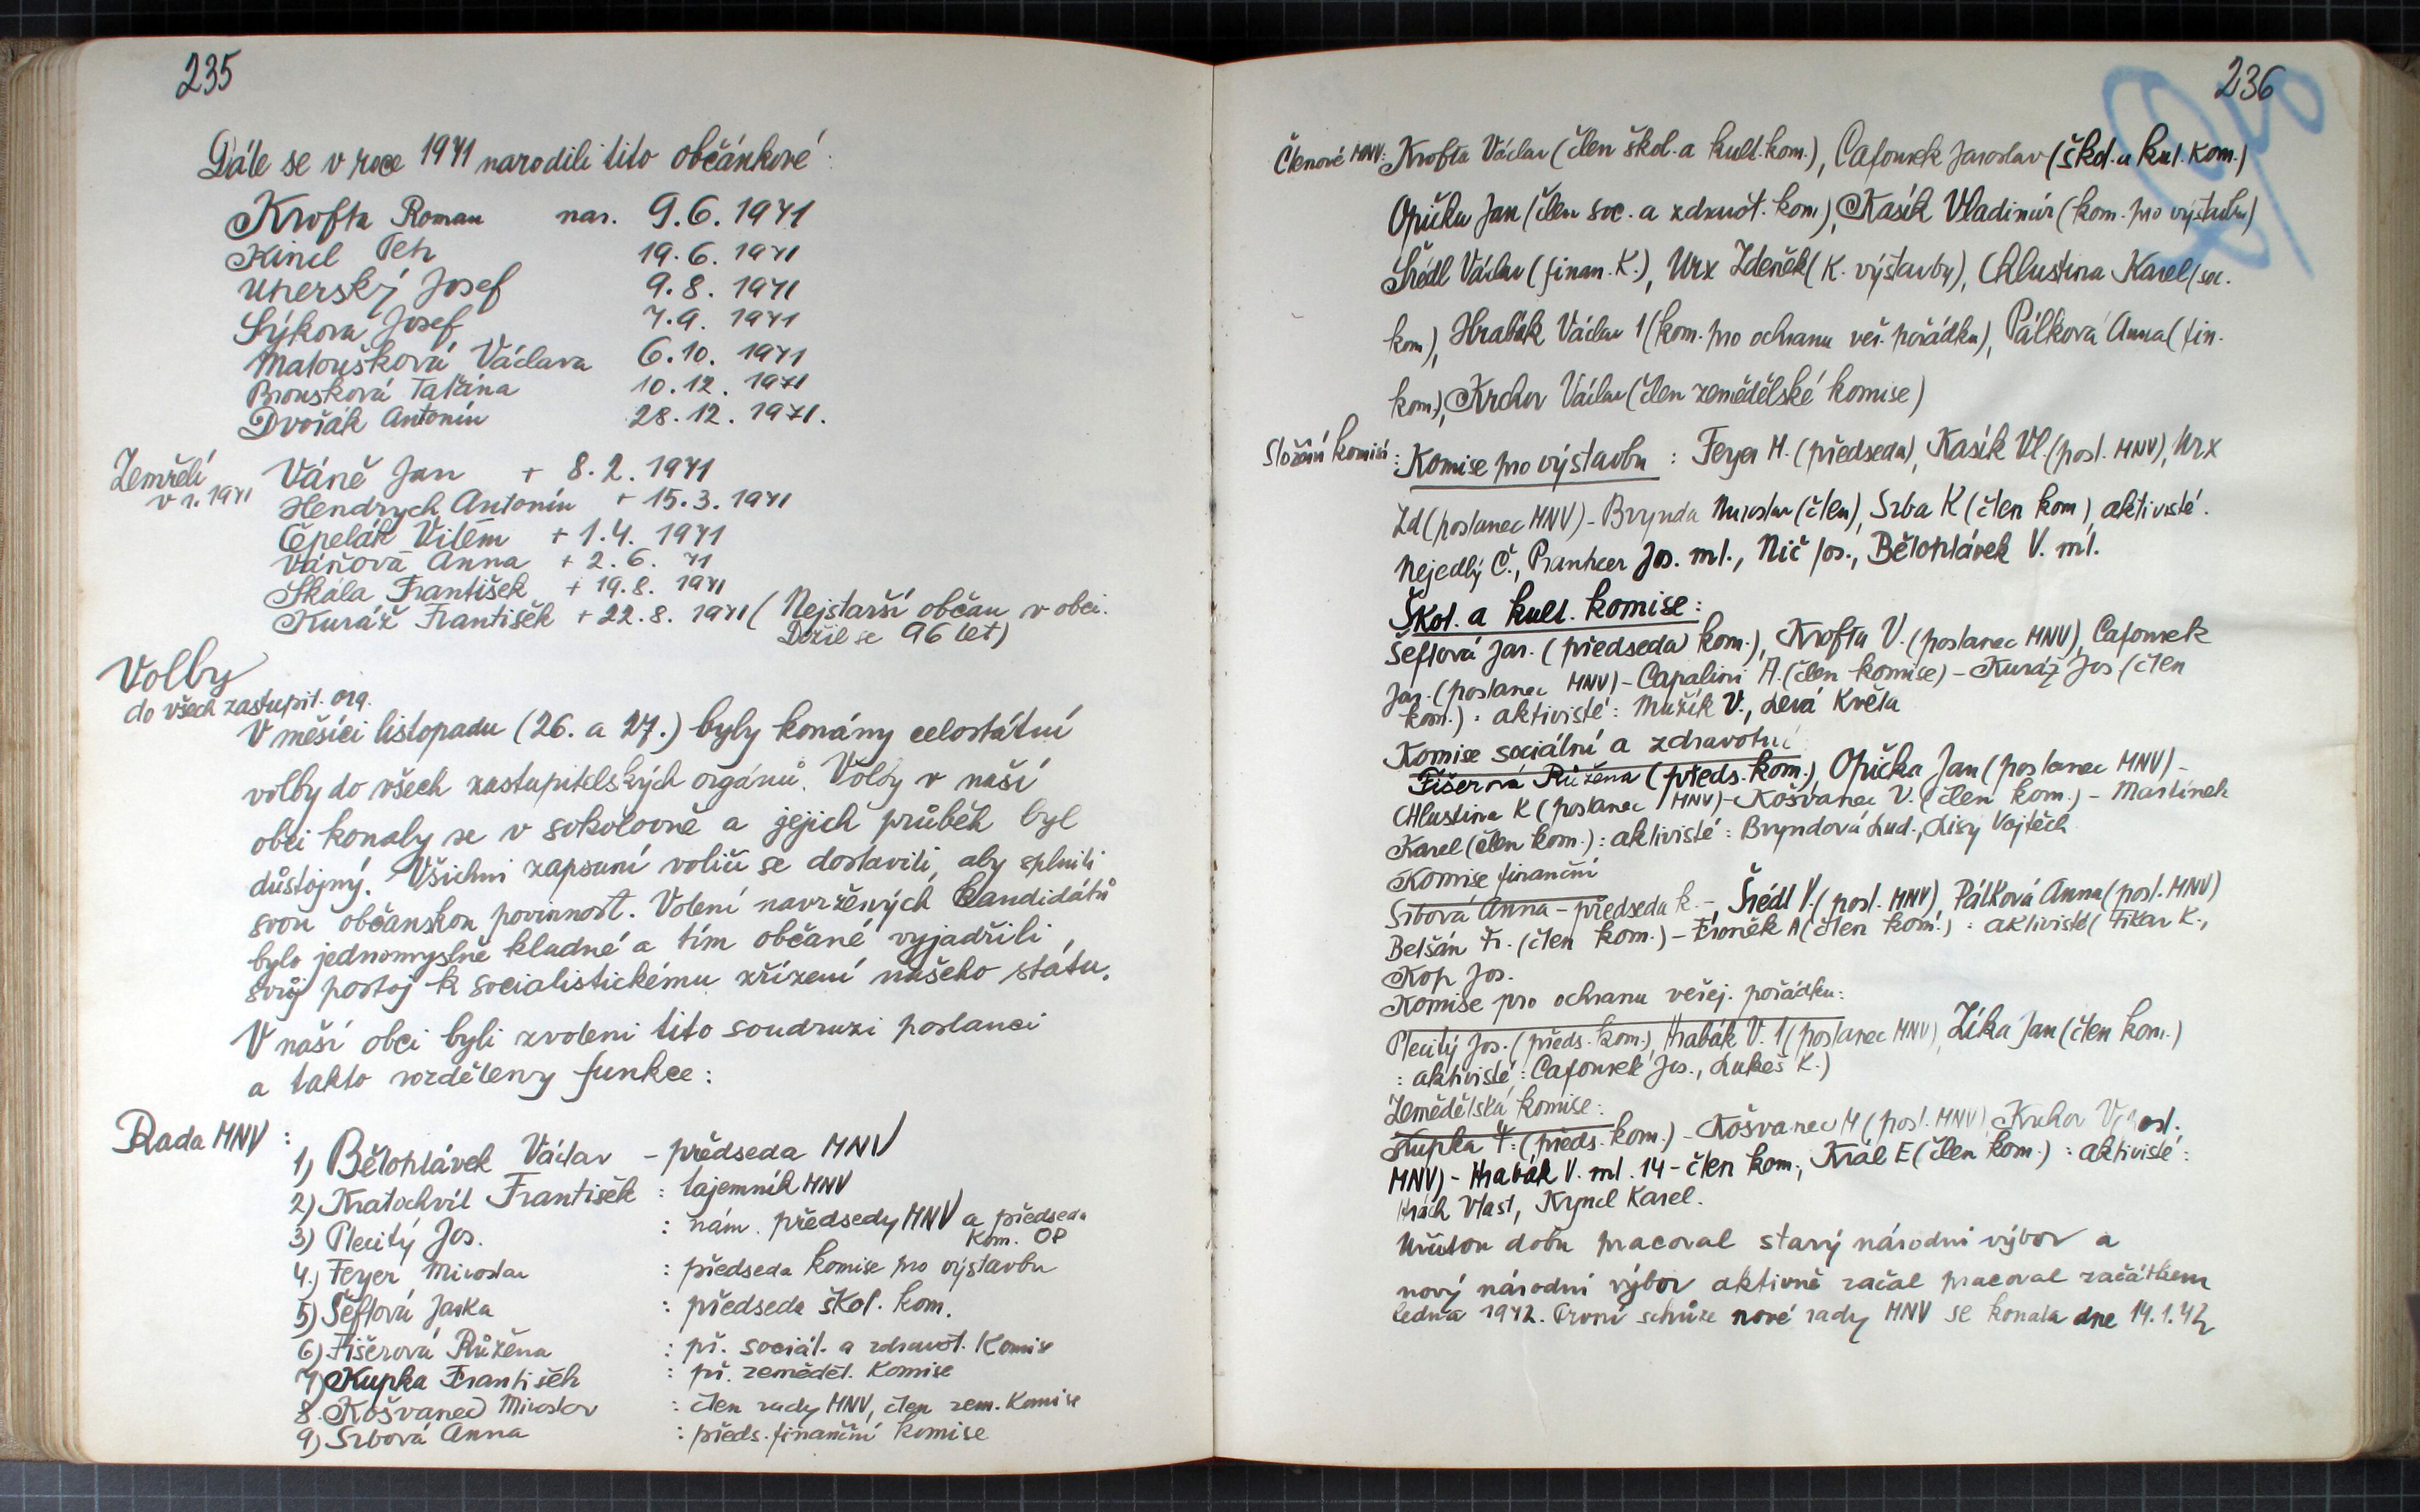 235
Dále se v roce 1971 narodili tito občánkové:
Krofta Roman nar. 9.6.1971
Kincl Petr 19.6.1971
Uherský Josef 9.8.1971
Sýkora Josef 7.9.1971
Matoušková Václava 6.10.1971
Brousková Taťána 10.12.1971
Dvořák Antonín 28.12.1971.
Zemřelí
v r. 1971
Váně Jan + 8.2.1971
Hendrych Antonín + 15.3.1971
Čepelák Vilém + 1.4.1971
Váňová Anna + 2.6.71
Skála František + 19.8.1971
Kuráž František + 22.8.1971 (Nejstarší občan v obci.
Dožil se 96 let)
Volby
do všech zastupit. org.
V měsíci listopadu (26. a 27.) byly konány celostátní
volby do všech zastupitelských orgánů. Volby v naší
obci konaly se v sokolovně a jejich průběh byl
důstojný. Všichni zapsaní voliči se dostavili, aby splnili
svou občanskou povinnost. Volení navržených kandidátů
bylo jednomyslně kladné a tím občané vyjádřili
svůj postoj k socialistickému zřízení našeho státu.
V naší obci byli zvoleni tito soudruzi poslanci
a takto rozděleny funkce:
Rada MNV:
1) Bělohlávek Václav - předseda MNV
2) Kratochvíl František : tajemník MNV
3) Plecitý Jos. : nám. předsedy MNV a předseda
kom. OP
4.) Feyer Miroslav : předseda komise pro výstavbu
5) Šeflová Jarka : předseda škol. kom.
6) Fišerová Růžena : př. sociál. a zdravot. Komise
7) Kupka František : př. zeměděl. Komise
8. Košvanec Miroslav : člen rady MNV, člen zem. Komise
9) Srbová Anna : předs. finanční komise
236
Členové MNV: Krofta Václav (člen škol. a kult. kom.), Cafourek Jaroslav (škol. a kul. kom.)
Opička Jan (člen soc. a zdravot. kom), Kasík Vladimír (kom. pro výstavbu)
Šrédl Václav (finan. K.), Urx Zdeněk (K. výstavby), Chlustina Karel (soc.
kom), Hrabák Václav 1 (kom. pro ochranu veř. pořádku), Pálková Anna (fin.
kom.), Krchov Václav (člen zemědělské komise)
Složení komisí: Komise pro výstavbu : Feyer M. (předseda), Kasík Vl. (posl. MNV), Urx
Zd (poslanec MNV) - Brynda Miroslav (člen), Srba K (člen kom), aktivisté:
Nejedlý Č., Jos. ml., Nič Jos., Bělohlávek V. ml.
Škol. a kult. komise:
Šeflová Jar. (předseda kom.), Krofta V. (poslanec MNV), Cafourek
Jar. (poslanec MNV) - Capalini A. (člen komise) - Kuráž Jos (člen
kom.) : aktivisté: Mužík V., Levá Květa
Komise sociální a zdravotní
Fišerová Růžena (předs. kom.), Opička Jan (poslanec MNV) -
Chlustina K (poslanec MNV) - Košvanec V. (člen kom.) - Martínek
Karel (člen kom.) : aktivisté: Bryndová Lud., Lisý Vojtěch
Komise finanční
Srbová Anna - předseda k. -, Šrédl V. (posl. MNV), Pálková Anna (posl. MNV)
Belšán Fr. (člen kom.) - Froněk A (člen kom.) : aktivisté (Fikar K.,
Kop Jos.
Komise pro ochranu veřej. pořádku:
Plecitý Jos. (předs. kom.), Hrabák V. 1 (poslanec MNV), Zíka Jan (člen kom.)
: aktivisté: Cafourek Jos., Lukeš K.)
Zemědělská komise:
Kupka F. (předs. kom.) - Košvanec M (posl. MNV) Krchov V posl.
MNV) - Hrabák V. ml. 14 - člen kom., Král E (člen kom.) : aktivisté:
Hrách Vlast, Kyncl Karel.
Určitou dobu pracoval starý národní výbor a
nový národní výbor aktivně začal pracoval začátkem
ledna 1972. První schůze nové rady MNV se konala dne 14.1.72